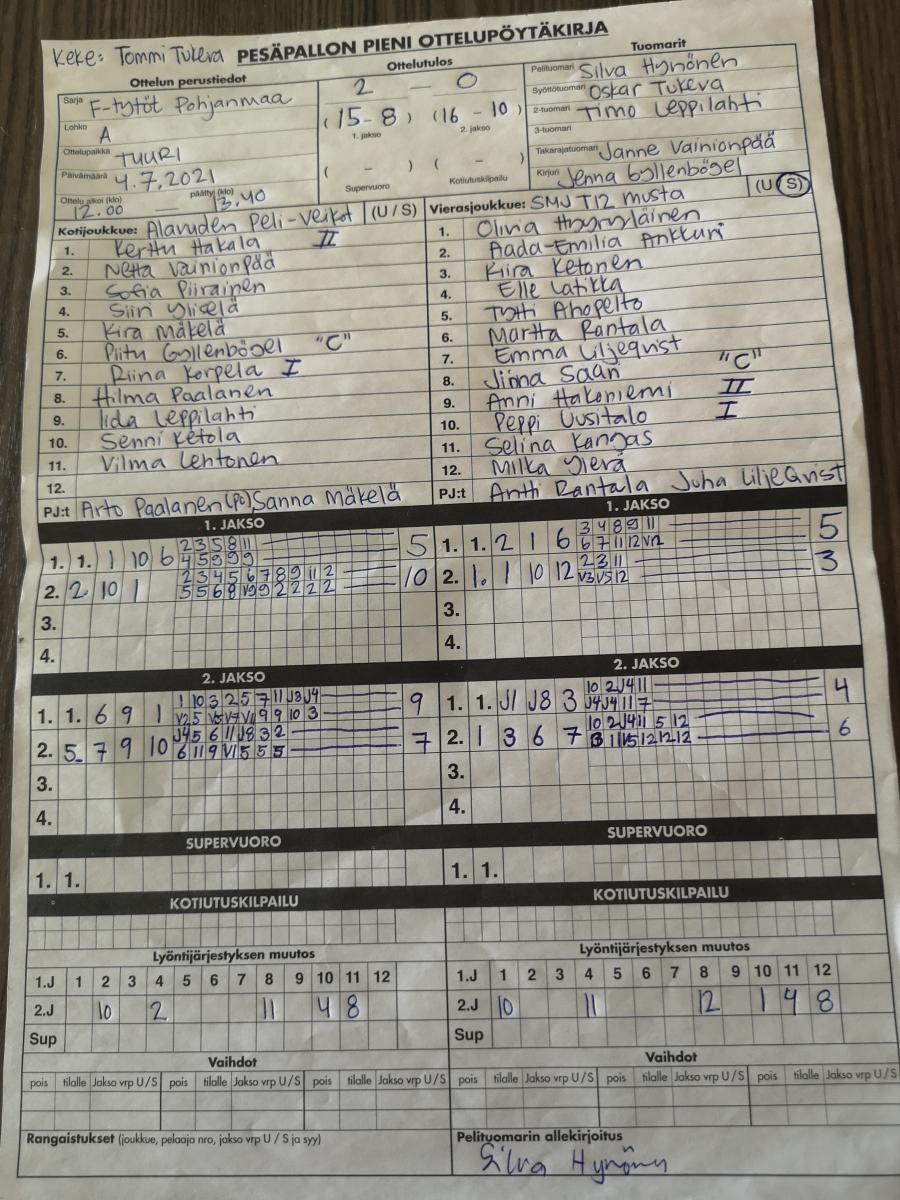 Keke: Tommi Tukeva PESÄPALLON PIENI OTTELUPÖYTÄKIRJA
Ottelun perustiedot
Sarja F-tytöt Pohjanmaa
Lohko A
Ottelupaikka TUURI
Päivämäärä 4.7.2021
Ottelu alkoi (klo) 12.00 päättyi (klo) 13.40
Ottelutulos
2 — 0
(15 - 8) (16 - 10)
1. jakso 2. jakso
( - ) ( - )
Supervuoro Kotiutuskilpailu
Tuomarit
Pelituomari Silva Hynönen
Syöttötuomari Oskar Tukeva
2-tuomari Timo Leppilahti
3-tuomari
Takarajatuomari Janne Vainionpää
Kirjuri Jenna Gyllenbögel
Kotijoukkue: Alavuden Peli-Veikot (U / S)
1. Kerttu Hakala II
2. Netta Vainionpää
3. Sofia Piirainen
4. Siiri Ylicelä
5. Kira Mäkelä
6. Piitu Gyllenbögel "C"
7. Riina Korpela I
8. Hilma Paalanen
9. Iida Leppilahti
10. Senni Ketola
11. Vilma Lehtonen
12.
PJ:t Arto Paalanen (PC), Sanna Mäkelä
Vierasjoukkue: SMJ T12 musta (U / S)
1. Olivia
2. Aada-Emilia Ankkuri
3. Kiira Ketonen
4. Elle Latikka
5. Tytti Ahopelto
6. Martta Rantala
7. Emma Liljeqvist
8. Jinna Saari "C"
9. Anni Hakoniemi II
10. Peppi Uusitalo I
11. Selina Kangas
12. Milka
PJ:t Antti Rantala Juha Liljeqvist
1. JAKSO
1. 1. 1 10 6 2 3 5 8 11 5
4 5 9 9 9
2. 2 10 1 2 3 4 5 6 7 8 9 11 2 10
5 5 6 8 V9 9 2 2 2 2
3.
4.
1. JAKSO
1. 1. 2 1 6 3 4 8 9 11 5
6 7 11 12 V12
2. 1. 1 10 12 2 3 11 3
V3 V5 12
3.
4.
2. JAKSO
1. 1. 6 9 1 1 10 3 2 5 7 11 J3 J4 9
9 9 10 3
2. 5. 7 9 10 J4 5 6 11 J8 3 2 7
6 11 9 V1 5 5 5
3.
4.
2. JAKSO
1. 1. J1 J8 3 10 2 J4 11 4
J4 J4 11 7
2. 1 3 6 7 10 2 J4 11 5 12 6
12 12 12
3.
4.
SUPERVUORO
1. 1.
SUPERVUORO
1. 1.
KOTIUTUSKILPAILU
KOTIUTUSKILPAILU
Lyöntijärjestyksen muutos
1.J 1 2 3 4 5 6 7 8 9 10 11 12
2.J 10 2 11 4 8
Sup
Lyöntijärjestyksen muutos
1.J 1 2 3 4 5 6 7 8 9 10 11 12
2.J 10 11 12 1 4 8
Sup
Vaihdot
pois tilalle Jakso vrp U/S pois tilalle Jakso vrp U/S pois tilalle Jakso vrp U/S
Vaihdot
pois tilalle Jakso vrp U/S pois tilalle Jakso vrp U/S pois tilalle Jakso vrp U/S
Rangaistukset (joukkue, pelaaja nro, jakso vrp U / S ja syy)
Pelituomarin allekirjoitus
Silva Hynönen